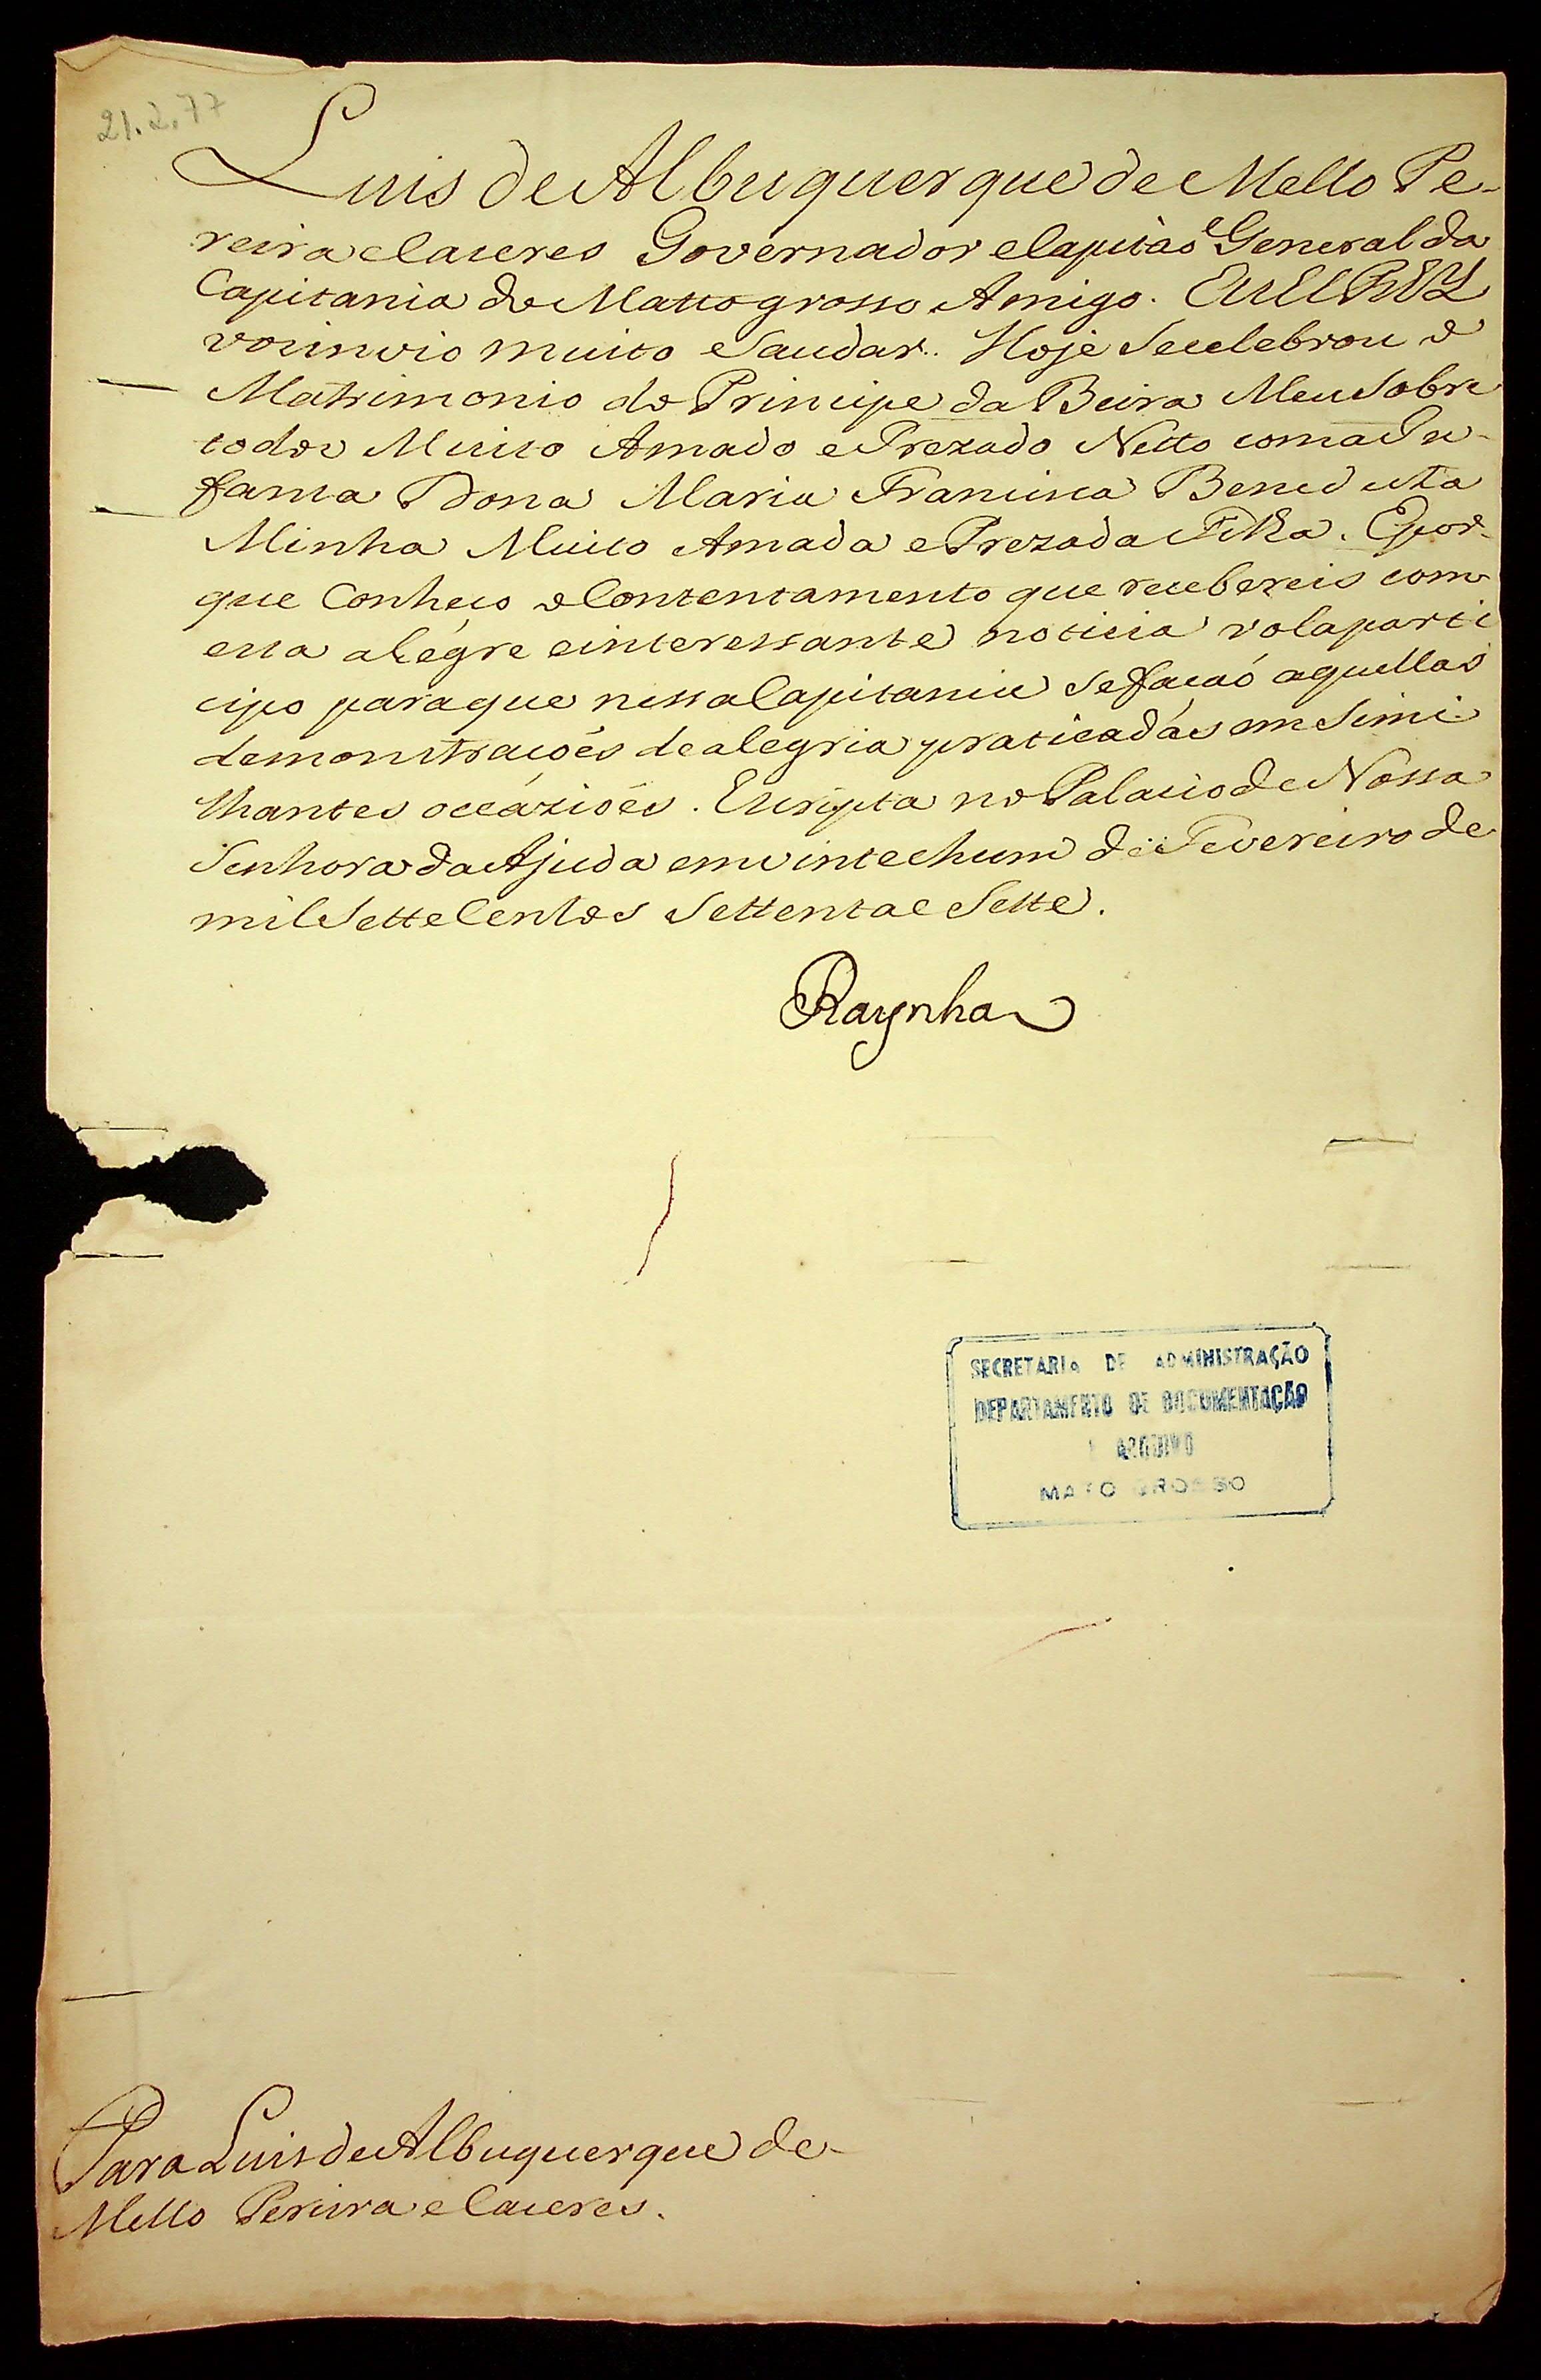 21.2.77
Luis de Albuquerque de Mello Pe-
reira e Caceres Governador e Capitaõ General da
Capitania do Mattogrosso Amigo. Eu ElREY
vos invio muito saudar. Hoje se celebrou o
Matrimonio do Principe da Beira Meu sobre
todos Muito Amado e Prezado Netto com a In-
fanta Dona Maria Francisca Benedicta
Minha Muito Amada e Prezada Filha. E por-
que Conheço o Contentamento que recebereis com
esta alégre e interessante noticia vola parti
cipo para que nessa Capitania se facaó aquellas
demonstraçoẽs de alegria praticadas em simi
lhantes occáziões. Escripta no Palacio de Nossa
Senhora da Ajuda em vinte e hum de Fevereiro de
mil Sette Centos settenta e Sette.
Raynha
SECRETARIA DE ADMINISTRAÇÃO
DEPARTAMENTO DE DOCUMENTAÇÃO
E ARQUIVO
MATO GROSSO
Para Luis de Albuquerque de
Mello Pereira e Caceres.